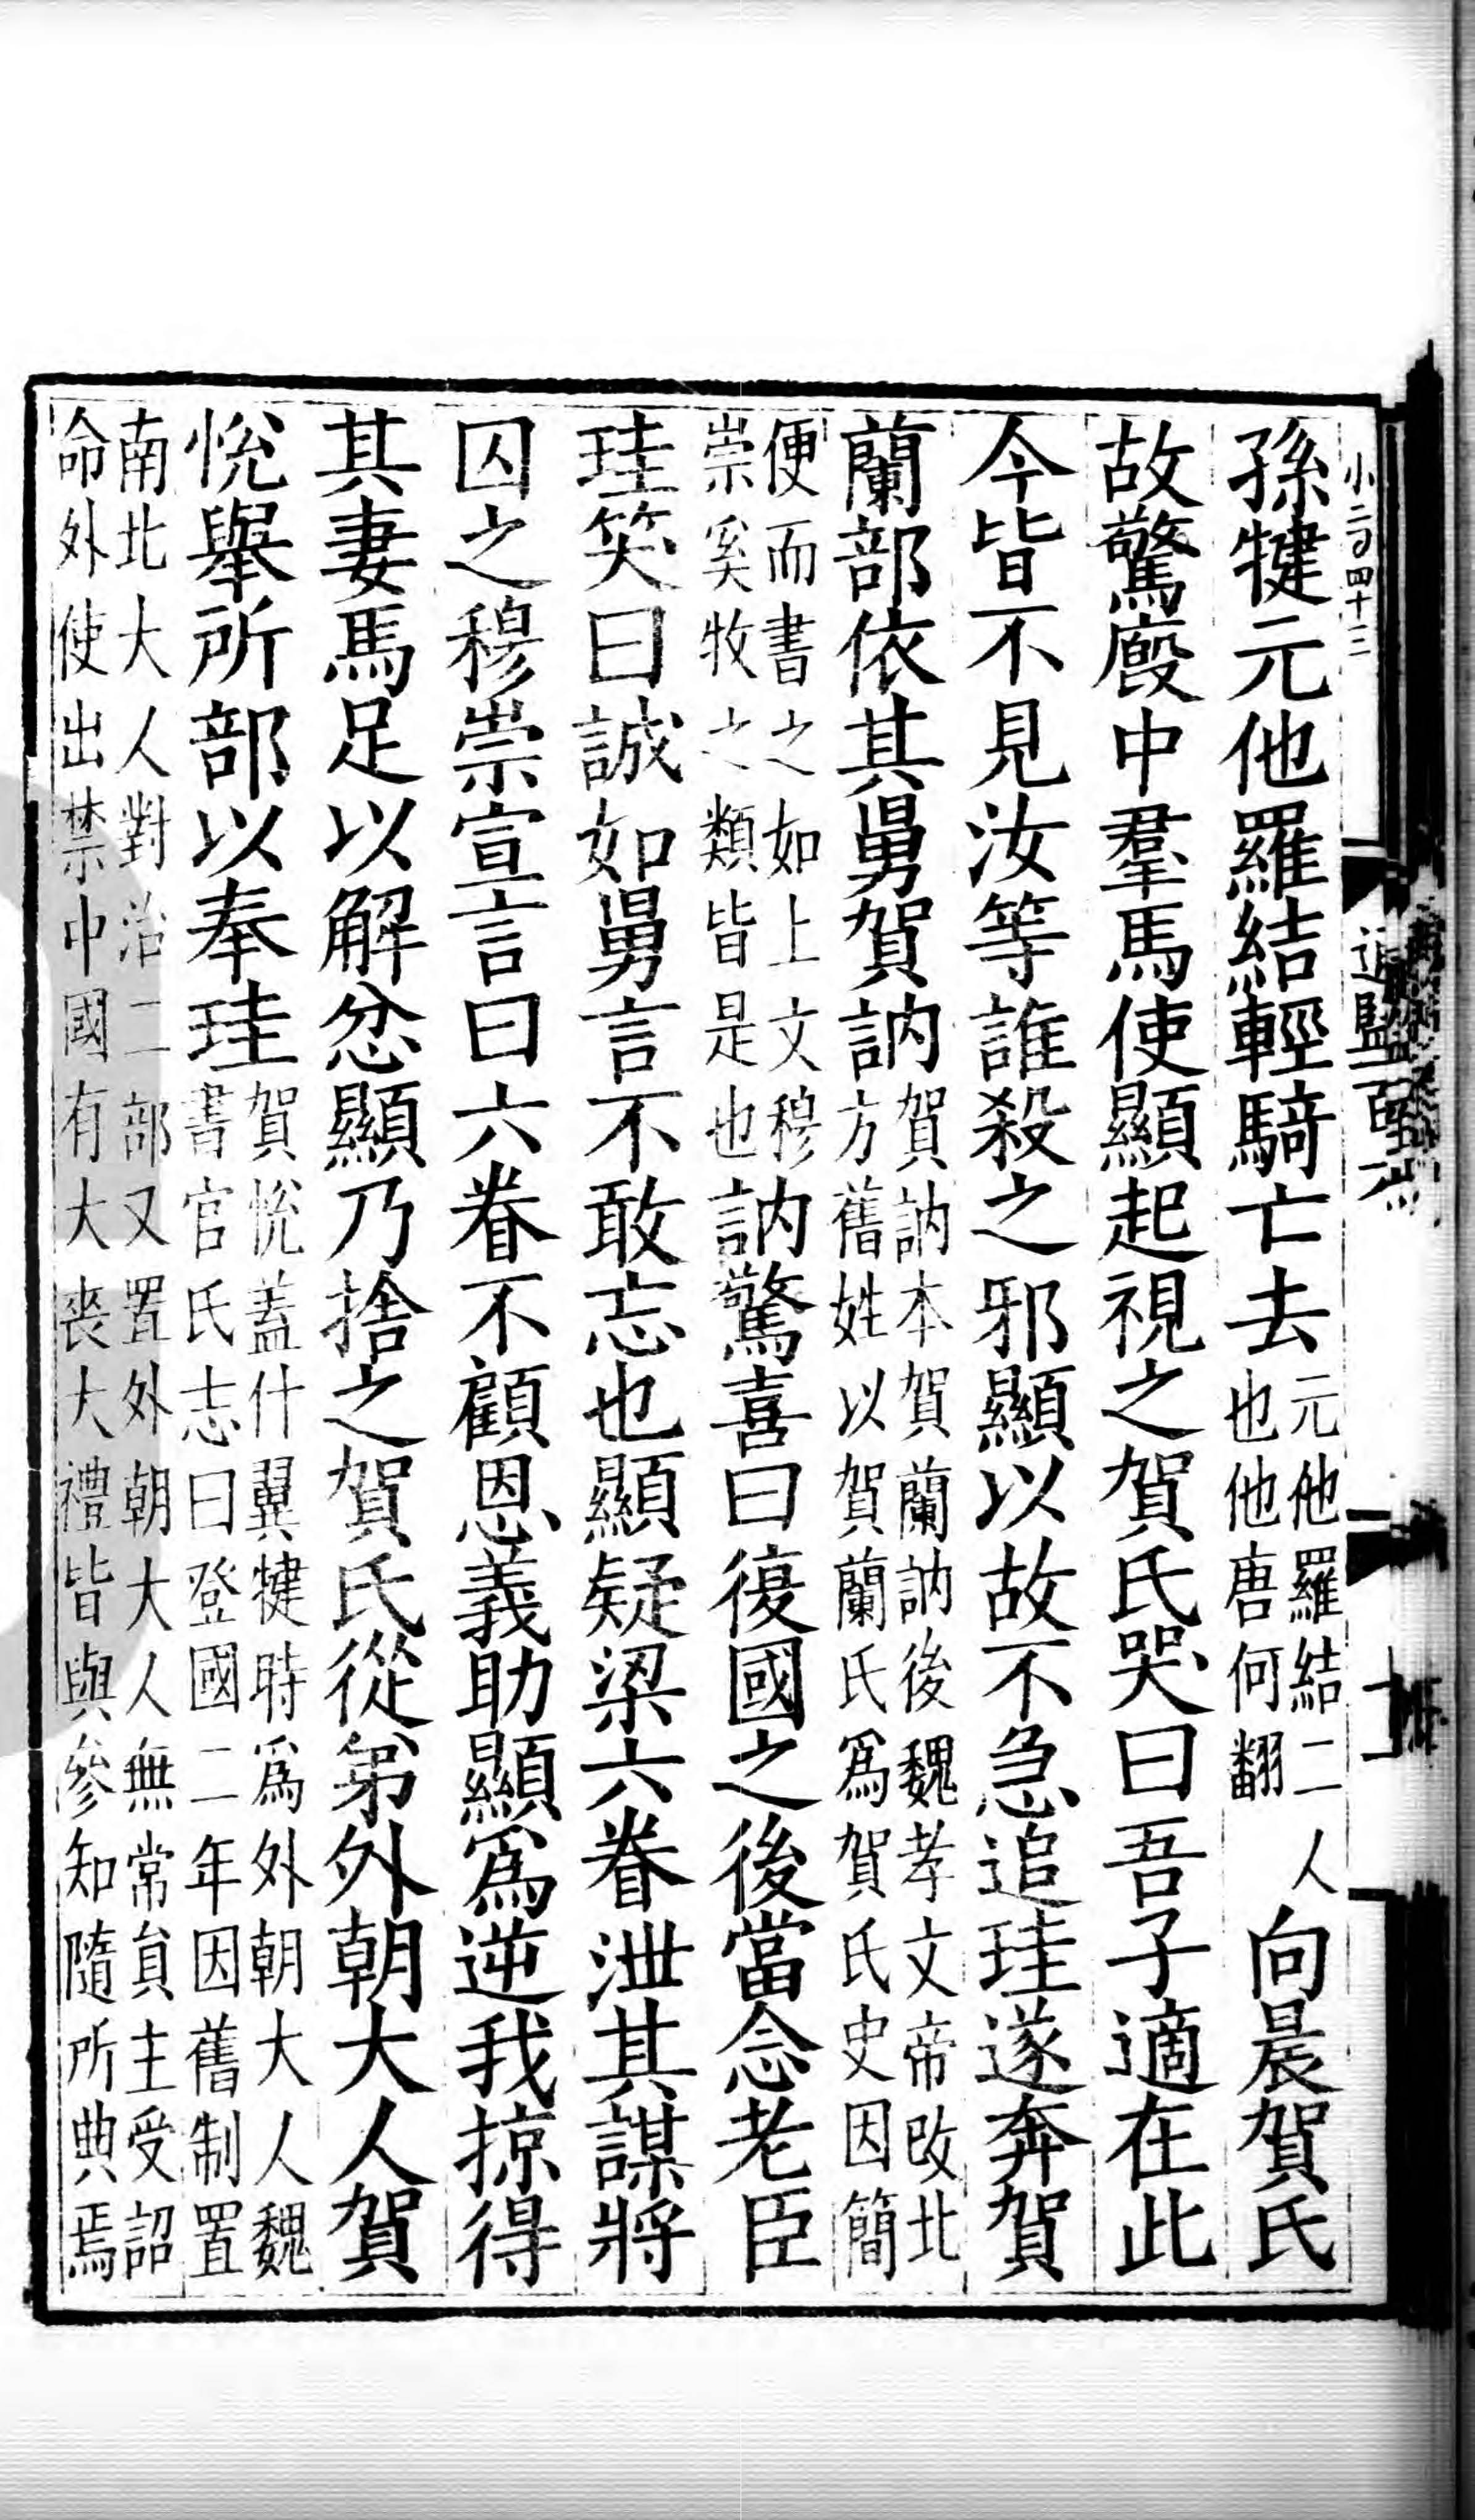 小二百四十三
孫犍元他羅結輕騎亡去元他羅結二人也他唐何翻向晨賀氏
故驚廏中羣馬使顯起視之賀氏哭曰吾子適在此
今皆不見汝等誰殺之邪顯以故不急追珪遂奔賀
蘭部依其舅賀訥賀訥本賀蘭訥後魏孝文帝改北方舊姓以賀蘭氏爲賀氏史因簡
便而書之如上文穆崇奚牧之類皆是也訥驚喜曰復國之後當念老臣
珪笑曰誠如舅言不敢忘也顯疑梁六眷泄其謀將
囚之穆崇宣言曰六眷不顧恩義助顯爲逆我掠得
其妻馬足以解忿顯乃捨之賀氏從弟外朝大人賀
悅舉所部以奉珪賀悅蓋什翼犍時爲外朝大人魏書官氏志曰登國二年因舊制置
南北大人對治二部又置外朝大人無常員主受詔命外使出禁中國有大喪大禮皆與參知隨所典焉